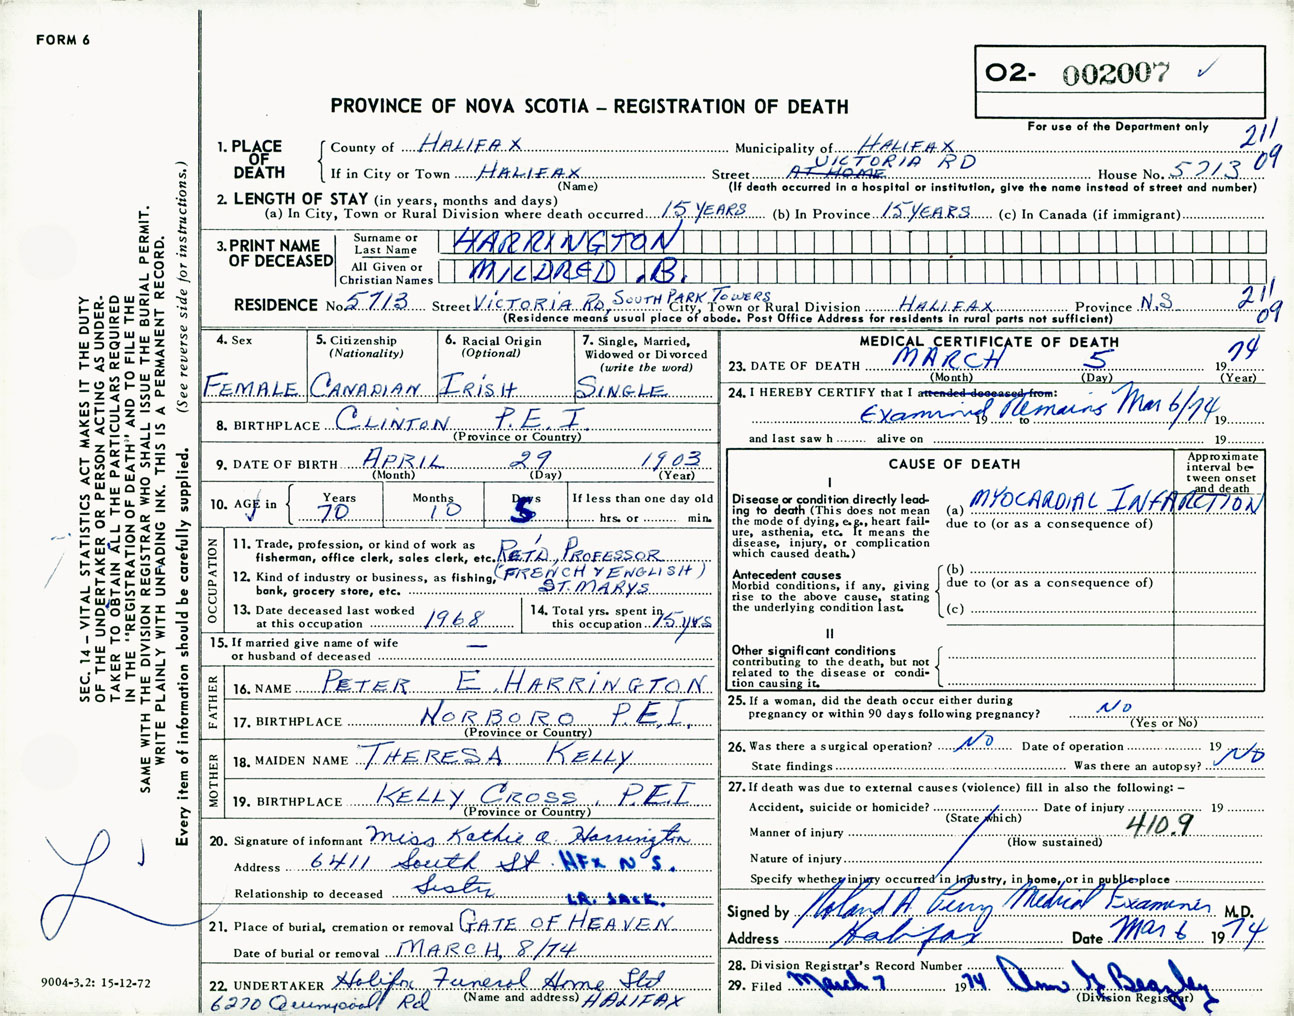 FORM 6
O2- 002007 ✓
For use of the Department only
PROVINCE OF NOVA SCOTIA – REGISTRATION OF DEATH
211
09
SEC. 14 – VITAL STATISTICS ACT MAKES IT THE DUTY
OF THE UNDERTAKER OR PERSON ACTING AS UNDER-
TAKER TO OBTAIN ALL THE PARTICULARS REQUIRED
IN THE "REGISTRATION OF DEATH" AND TO FILE THE
SAME WITH THE DIVISION REGISTRAR WHO SHALL ISSUE THE BURIAL PERMIT.
WRITE PLAINLY WITH UNFADING INK. THIS IS A PERMANENT RECORD.
Every item of information should be carefully supplied. (See reverse side for instructions.)
1. PLACE OF DEATH
County of HALIFAX Municipality of HALIFAX
If in City or Town HALIFAX Street AT HOME VICTORIA RD House No. 5713
(Name) (If death occurred in a hospital or institution, give the name instead of street and number)
2. LENGTH OF STAY (in years, months and days)
(a) In City, Town or Rural Division where death occurred 15 YEARS (b) In Province 15 YEARS (c) In Canada (if immigrant)
3. PRINT NAME OF DECEASED
Surname or Last Name HARRINGTON
All Given or Christian Names MILDRED .B.
RESIDENCE No. 5713 Street VICTORIA RD, SOUTH PARK TOWERS City, Town or Rural Division HALIFAX Province N.S. 211
09
(Residence means usual place of abode. Post Office Address for residents in rural parts not sufficient)
4. Sex FEMALE
5. Citizenship (Nationality) CANADIAN
6. Racial Origin (Optional) IRISH
7. Single, Married, Widowed or Divorced (write the word) SINGLE
8. BIRTHPLACE CLINTON P.E.I.
(Province or Country)
9. DATE OF BIRTH APRIL 29 1903
(Month) (Day) (Year)
10. AGE in Years 70 Months 10 Days 5 If less than one day old
hrs. or min.
OCCUPATION
11. Trade, profession, or kind of work as
fisherman, office clerk, sales clerk, etc. RET'D, PROFESSOR
12. Kind of industry or business, as fishing, (FRENCH & ENGLISH)
bank, grocery store, etc. ST. MARYS
13. Date deceased last worked at this occupation 1968
14. Total yrs. spent in this occupation 15 yrs
15. If married give name of wife
or husband of deceased —
FATHER
16. NAME PETER E. HARRINGTON
17. BIRTHPLACE NORBORO P.E.I.
(Province or Country)
MOTHER
18. MAIDEN NAME THERESA KELLY
19. BIRTHPLACE KELLY CROSS, P.E.I
(Province or Country)
20. Signature of informant Miss Kathie A. Harrington
Address 6411 South St HFX N S.
Relationship to deceased Sister
LR. SACK.
21. Place of burial, cremation or removal GATE OF HEAVEN
Date of burial or removal MARCH, 8/74
22. UNDERTAKER Halifax Funeral Home Ltd
6270 Rd (Name and address) HALIFAX
9004-3.2: 15-12-72
MEDICAL CERTIFICATE OF DEATH
23. DATE OF DEATH MARCH 5 19 74
(Month) (Day) (Year)
24. I HEREBY CERTIFY that I attended deceased from:
Examined Remains Mar 6/74
19 to 19
and last saw h alive on 19
CAUSE OF DEATH
Approximate interval between onset and death
I
Disease or condition directly lead-
ing to death (This does not mean
the mode of dying, e.g., heart fail-
ure, asthenia, etc. It means the
disease, injury, or complication
which caused death.)
(a) MYOCARDIAL INFARCTION
due to (or as a consequence of)
Antecedent causes
Morbid conditions, if any, giving
rise to the above cause, stating
the underlying condition last.
(b)
due to (or as a consequence of)
(c)
II
Other significant conditions
contributing to the death, but not
related to the disease or condi-
tion causing it.
25. If a woman, did the death occur either during
pregnancy or within 90 days following pregnancy? NO
(Yes or No)
26. Was there a surgical operation? NO Date of operation 19
State findings Was there an autopsy? NO
27. If death was due to external causes (violence) fill in also the following: –
Accident, suicide or homicide? Date of injury 19
(State which)
Manner of injury 410.9
(How sustained)
Nature of injury
Specify whether injury occurred in industry, in home, or in public place
Signed by Roland A Perry Medical Examiner M.D.
Address Halifax Date Mar 6 19 74
28. Division Registrar's Record Number
29. Filed March 7 19 74
(Division Registrar)